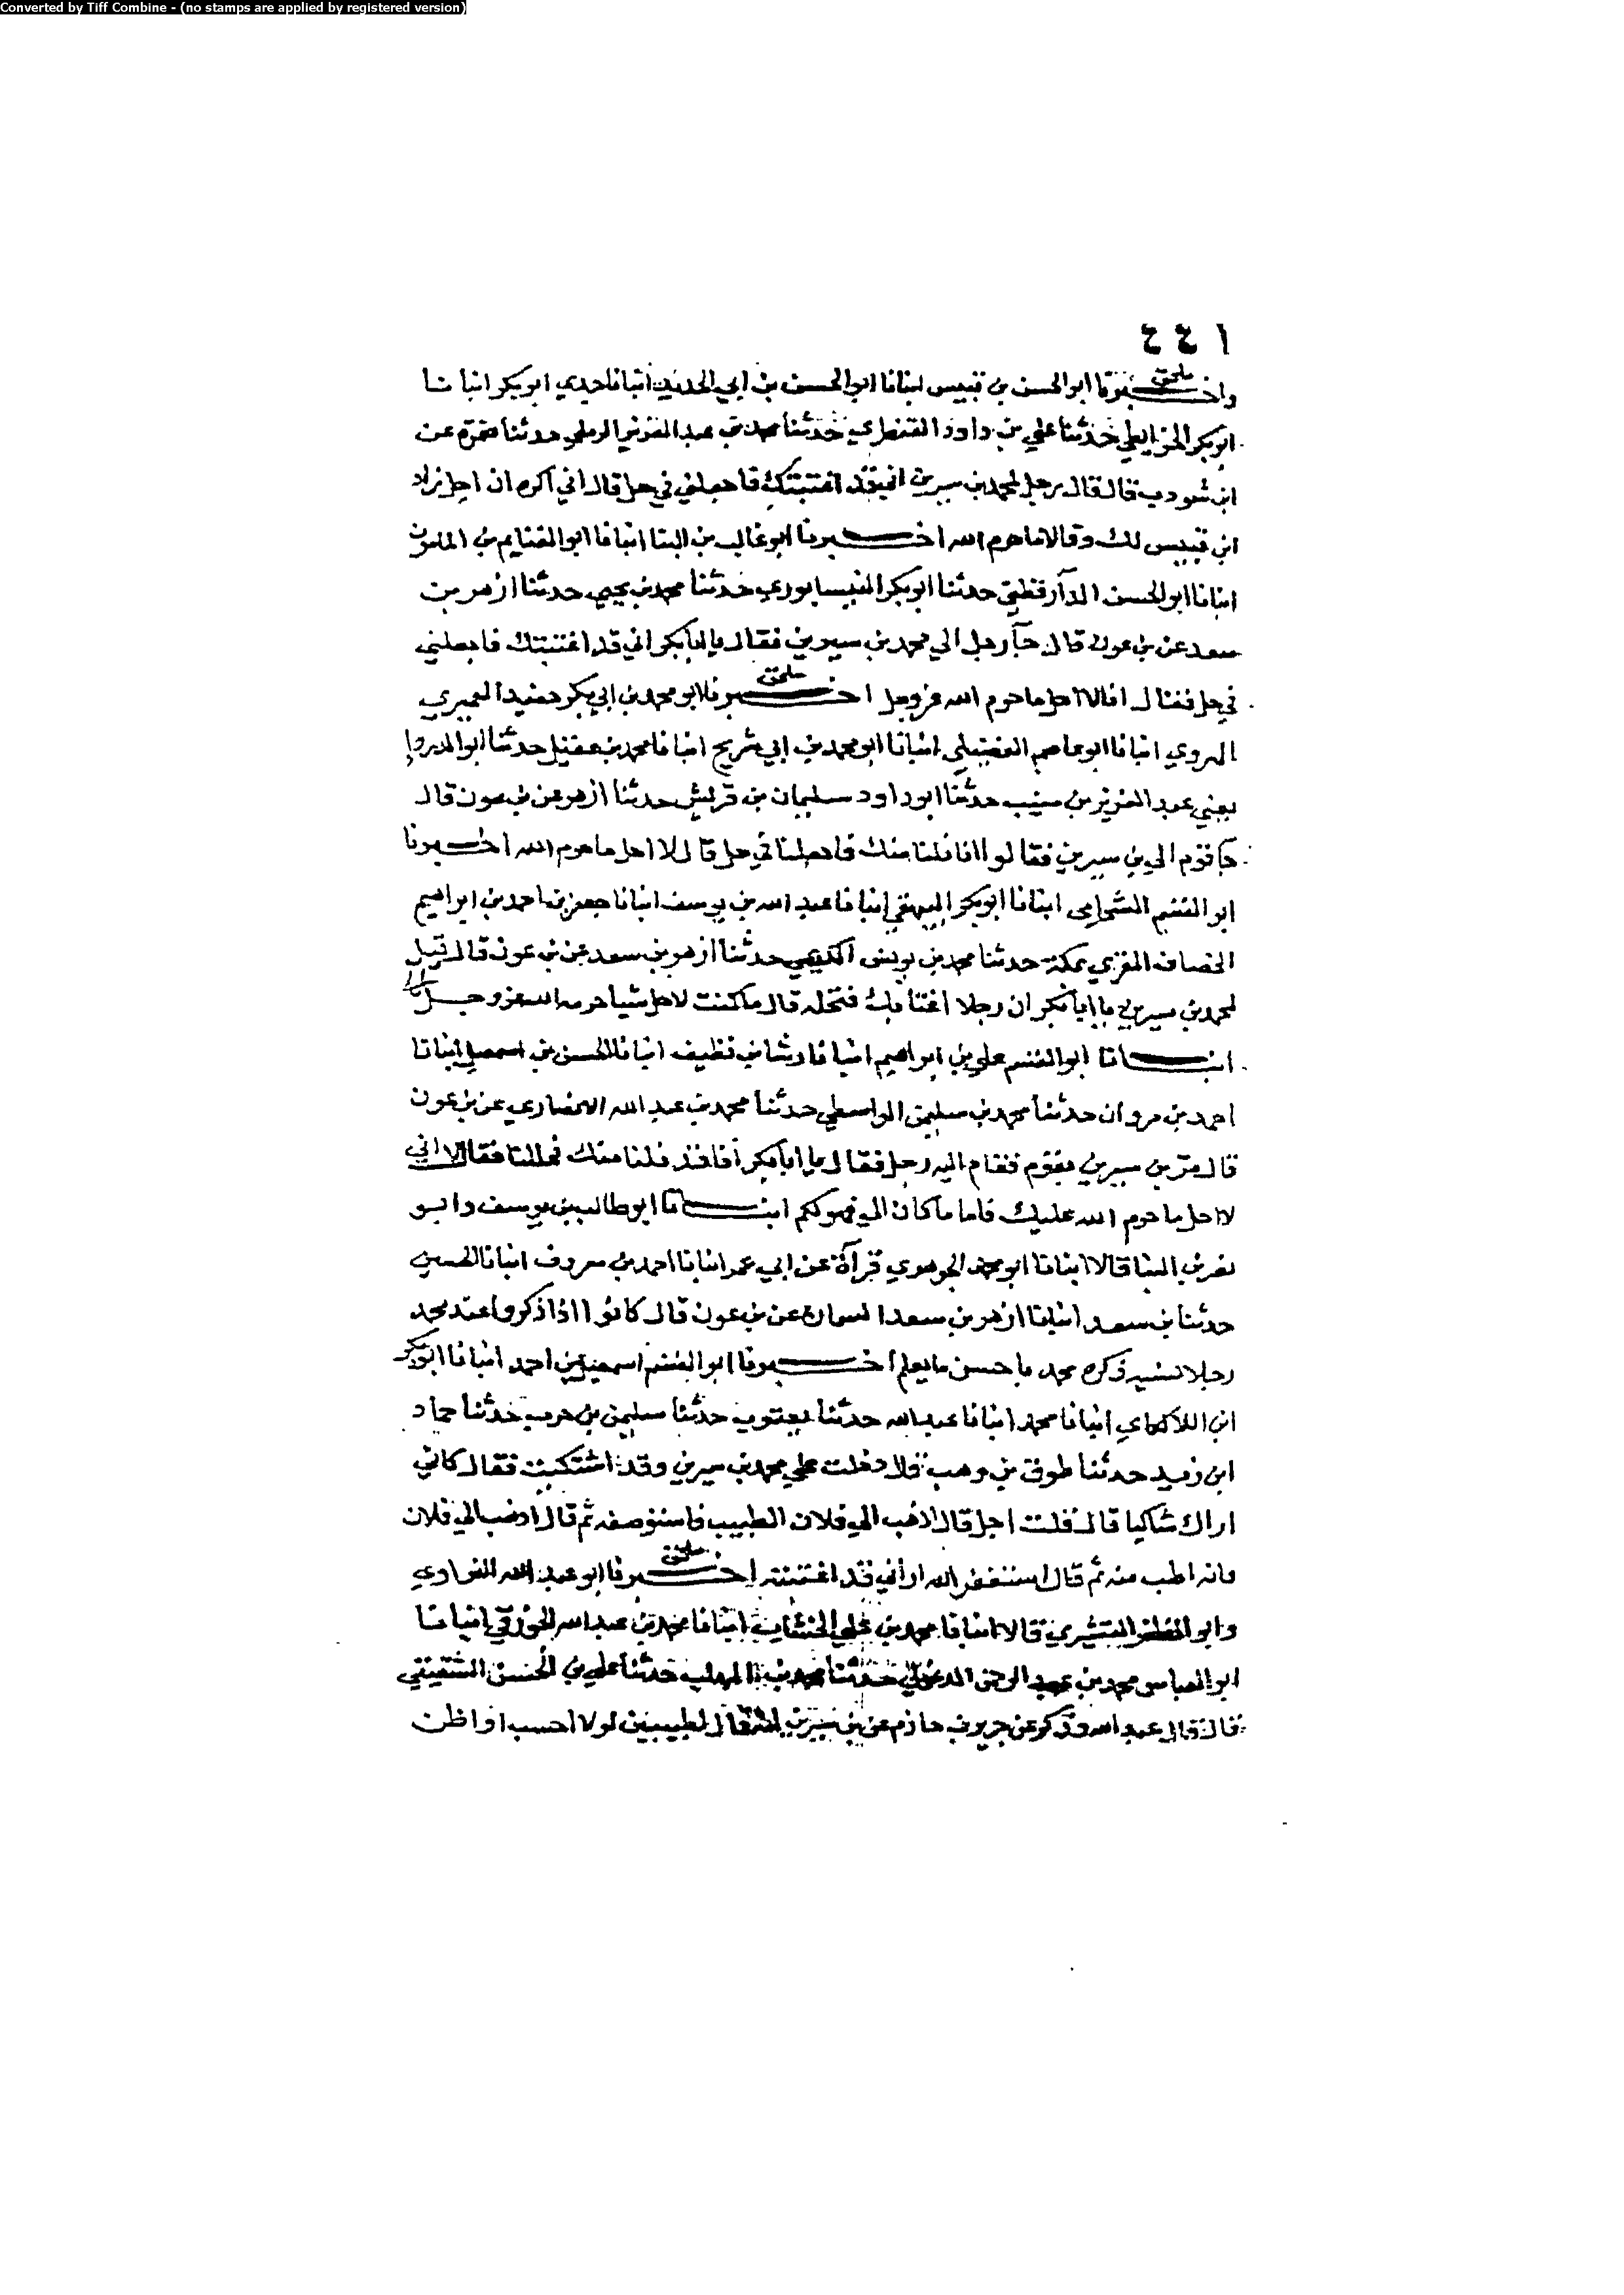 Converted by Tiff Combine - (no stamps are applied by registered version)
١٤٤
ملحق
واخبرنا ابو الحسن بن قبيس انبانا ابو الحسن بن ابي الحديد انبانا جدي ابو بكر انبانا
ابو بكر الخرايطي حدثنا علي بن داود القنطري حدثنا محمد بن عبد العزيز الرملي حدثنا ضمرة عن
ابن شوذب قال قال رجل لمحمد بن سيرين اني قد اغتبتك فاجعلني في حل قال اني اكره ان احل زاد
ابن قبيس لك وقالا ما حرم الله اخبرنا ابو غالب بن البنا انبانا ابو الغنايم بن المامون
انبانا ابو الحسن الدارقطني حدثنا ابو بكر النيسابوري حدثنا محمد بن يحيى حدثنا ازهر بن
سعد عن بن عون قال جآ رجل الى محمد بن سيرين فقال يا ابا بكر اني قد اغتبتك فاجعلني
ملحق
في حل فقال انا لا احل ما حرم الله عز وجل اخبرنا ابو محمد بن ابي بكر حفيد العميري
الهروي انبانا ابو عاصم الفضيلي انبانا ابو محمد بن ابي شريح انبانا محمد بن عقيل حدثنا ابو الدردا
يعني عبد العزيز بن منيب حدثنا ابو داود سليمان بن قريش حدثنا ازهر عن بن عون قال
جا قوم الى بن سيرين فقالوا انا نلنا منك فاجعلنا في حل قال لا احل ما حرم الله اخبرنا
ابو القسم الشحامي انبانا ابو بكر البيهقي انبانا عبد الله بن يوسف انبانا جعفر بن احمد بن ابراهيم
الخصاف المقري بمكة حدثنا محمد بن يونس الكديمي حدثنا ازهر بن سعد عن بن عون قال قيل
لمحمد بن سيرين يا ابا بكر ان رجلا اغتابك فتحله قال ما كنت لاحل شيا حرمه الله عز وجل
انبانا ابو القسم علي بن ابراهيم انبانا رشا بن نظيف انبانا الحسن بن اسمعيل انبانا
احمد بن مروان حدثنا محمد بن سليمن الواسطي حدثنا محمد بن عبد الله الانصاري عن بن عون
قال مر بن سيرين بقوم فقام اليه رجل فقال يا ابا بكر انا قد نلنا منك فحللنا فقال اني
لا احل ما حرم الله عليك فاما ما كان الي فهو لكم انبانا ابو طالب بن يوسف وابو
نصر بن البنا قالا انبانا ابو محمد الجوهري قرآة عن ابي عمر انبانا احمد بن معروف انبانا الحسين
حدثنا بن سعد انبانا ازهر بن سعد السمان عن بن عون قال كانوا اذا ذكروا عند محمد
رجلا بسيه ذكره محمد باحسن ما يعلم اخبرنا ابو القسم اسمعيل بن احمد انبانا ابو بكر
ابن اللالكاي انبانا محمد انبانا عبد الله حدثنا يعقوب حدثنا سليمن بن حرب حدثنا حماد
ابن زيد حدثنا طوق بن وهب قال دخلت على محمد بن سيرين وقد اشتكيت فقال كاني
اراك شاكيا قال قلت اجل قال اذهب الى فلان الطبيب فاستوصفه ثم قال اذهب الى فلان
ملحق
فانه اطب منه ثم قال استغفر الله اراني قد اغتبته اخبرنا ابو عبد الله الفراوي
وابو المظفر القشيري قالا انبانا محمد بن علي الخشاب انبانا محمد بن عبد الله الجوزقي انبانا
ابو العباس محمد بن عبد الرحمن الدغولي حدثنا محمد بن المهلب حدثنا علي بن الحسن الشقيقي
قال قال عبد الله وذكر عن جرير بن حازم عن بن سيرين انه قال لطبيبين لولا احسب اواظن